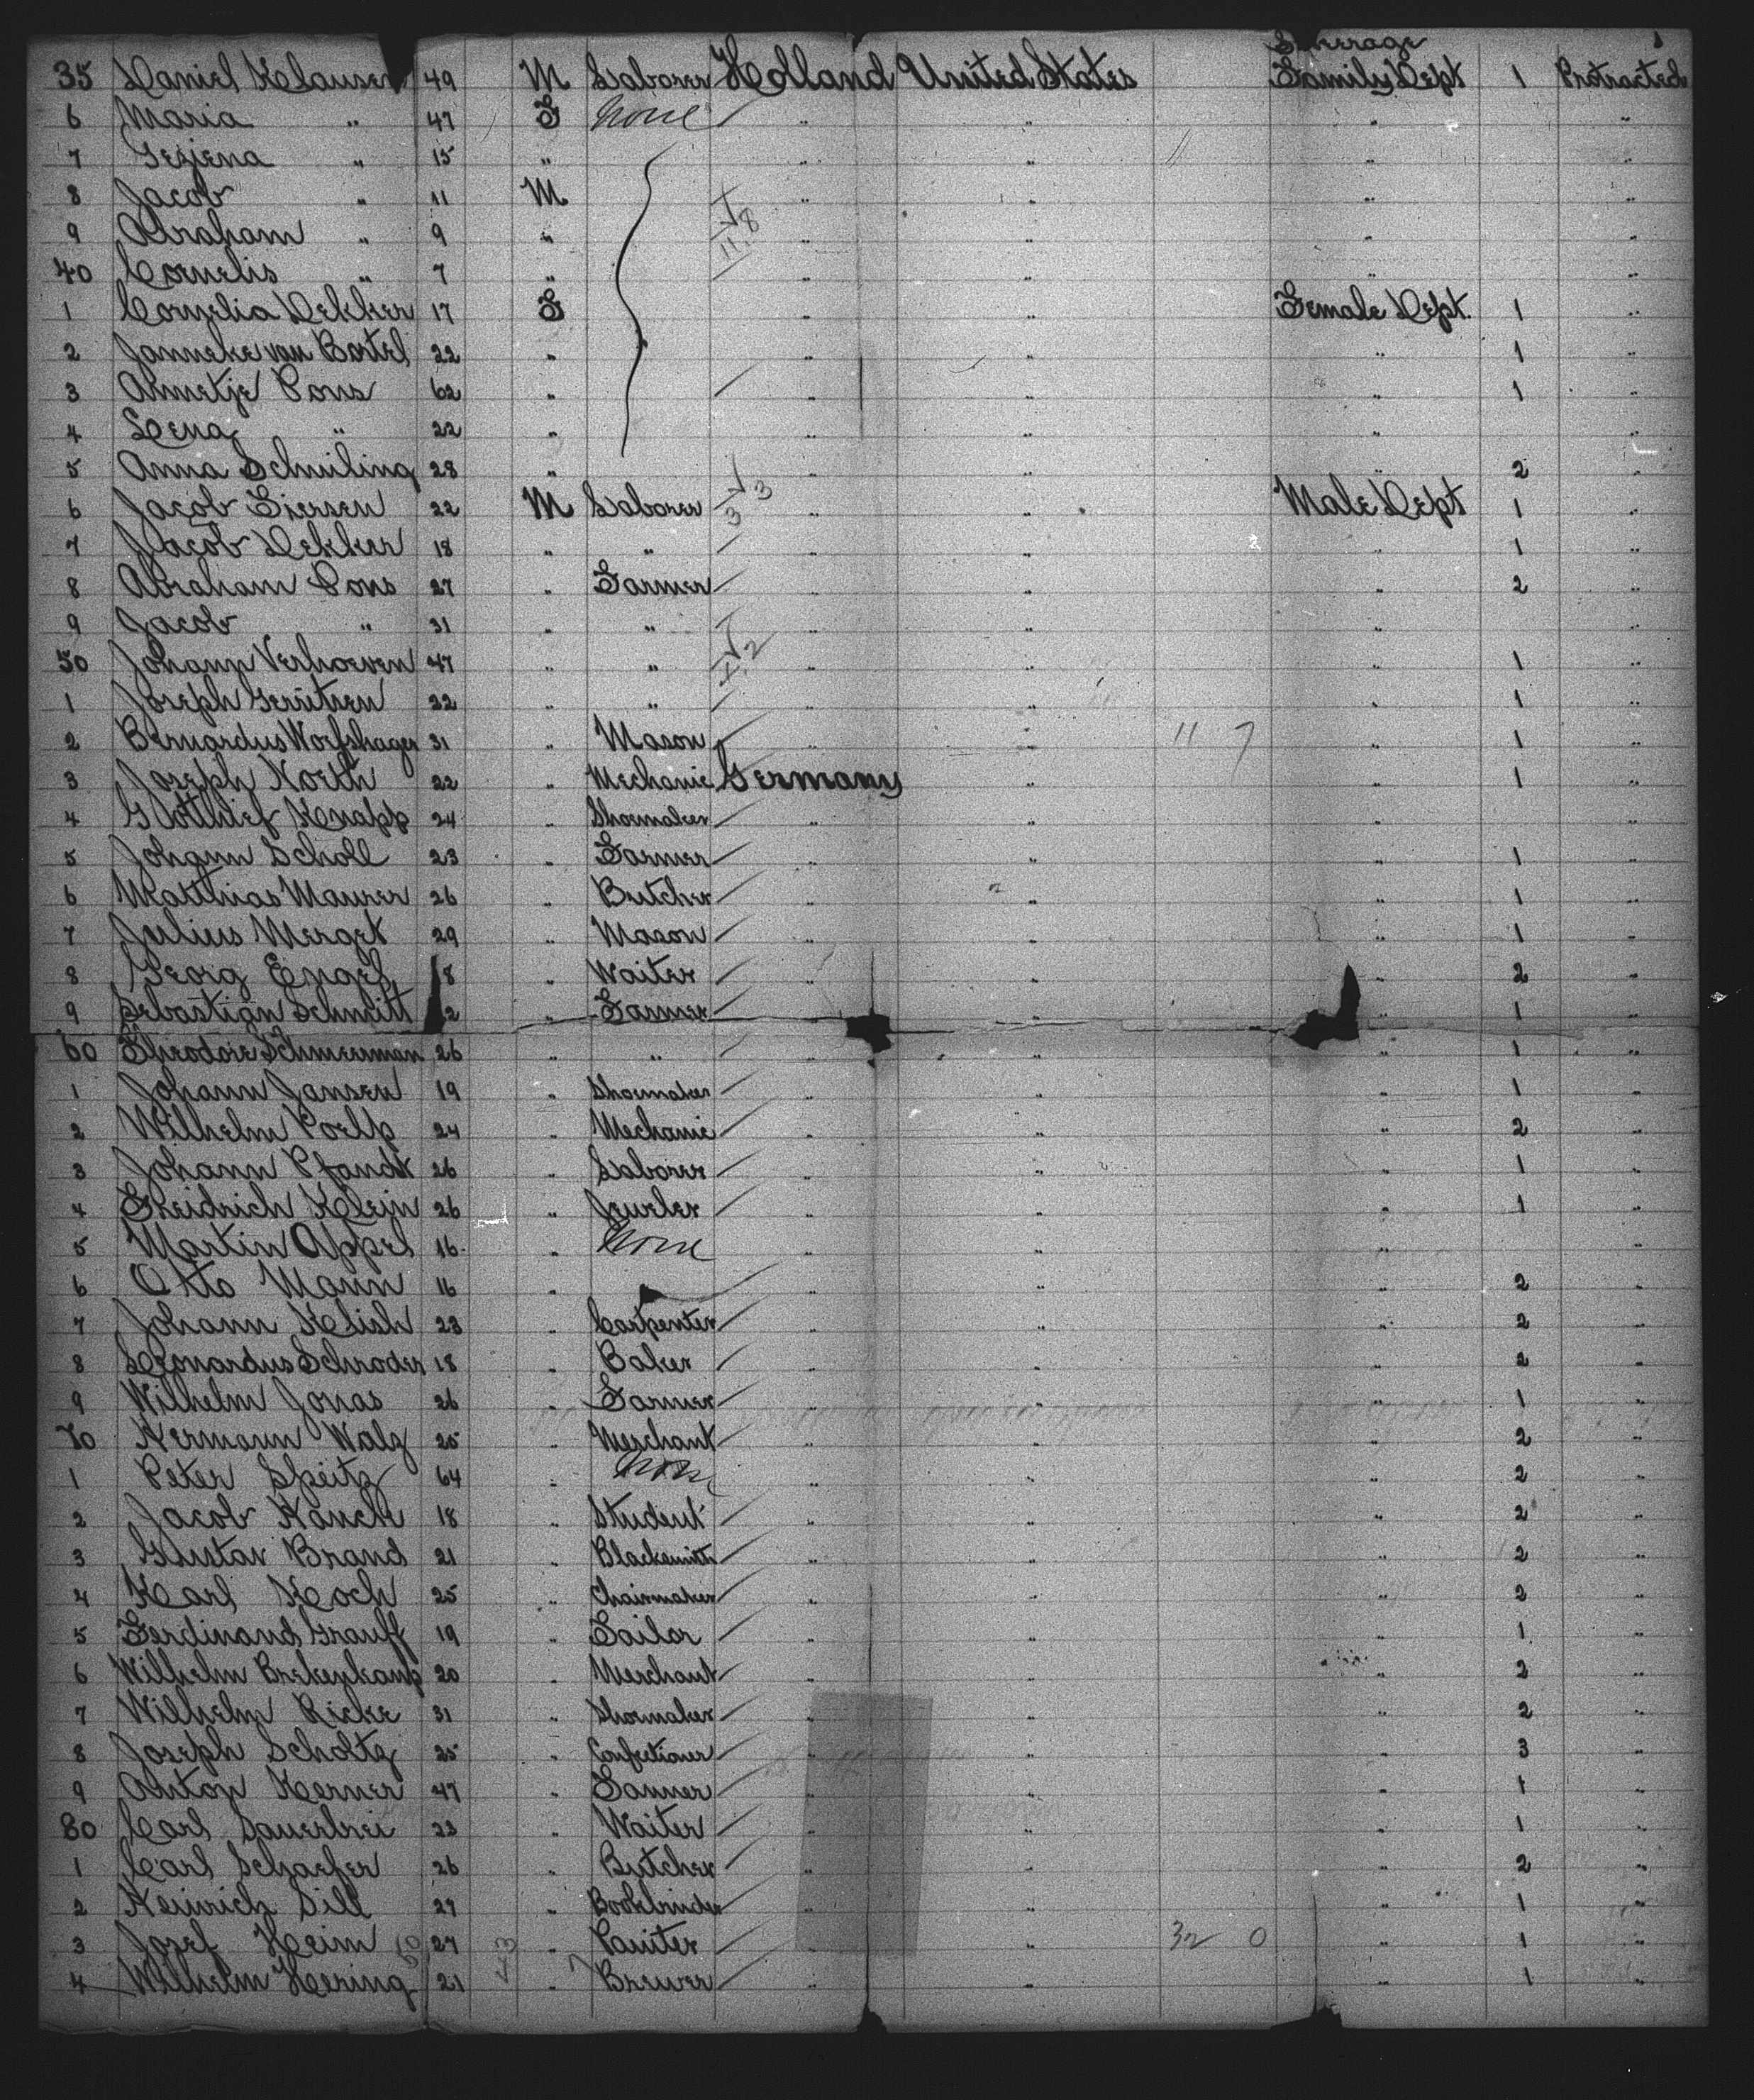 Steerage
35 Daniel Klausen 49 M Laborer Holland United States Family Dept 1 Protracted
6 Maria " 47 F None " " " "
7 Gezjena " 15 " " " " "
8 Jacob " 11 M " " " "
9 Abraham " 9 " " " " "
40 Cornelis " 7 " " " " "
1 Cornelia Dekker 17 F " " Female Dept. 1 "
2 Janneke van Bortel 22 " " " " 1 "
3 Annetje Pons 62 " " " " 1 "
4 Lena " 22 " " " " "
5 Anna Schuiling 28 " " " " 2 "
6 Jacob Giersen 22 M Laborer " " Male Dept 1 "
7 Jacob Dekker 18 " " " " " 1 "
8 Abraham Pons 27 " Farmer " " " 2 "
9 Jacob " 31 " " " " " "
50 Johann Verhoeven 47 " " " " " 1 "
1 Joseph Gerritsen 22 " " " " " 1 "
2 Bernardus Worfshager 31 " Mason " " 11 7 " 1 "
3 Joseph North 22 " Mechanic Germany " " 1 "
4 Gotthief Knapp 24 " Shoemaker " " " "
5 Johann Scholl 23 " Farmer " " " 1 "
6 Matthias Maurer 26 " Butcher " " " 1 "
7 Julius Merget 29 " Mason " " " 1 "
8 Georg Engel 8 " Waiter " " " 2 "
9 Sebastian Schmitt 2 " Farmer " " " 1 "
60 Theodore Schmerman 26 " " " " " 1 "
1 Johann Jansen 19 " Shoemaker " " " 1 "
2 Wilhelm 24 " Mechanic " " " 2 "
3 Johann Pfandt 26 " Laborer " " " 1 "
4 Freidrich Klein 26 " Jeweler " " " 1 "
5 Martin Appel 16 " None " " " "
6 Otto Mann 16 " " " " 2 "
7 Johann Klish 23 " Carpenter " " " 2 "
8 Leonardus Schroder 18 " Baker " " " 2 "
9 Wilhelm Jonas 26 " Farmer " " " 1 "
70 Hermann Walz 25 " Merchant " " " 2 "
1 Peter Speitz 64 " None " " " 2 "
2 Jacob Hauck 18 " Student " " " 2 "
3 Gustav Brand 21 " Blacksmith " " " 2 "
4 Karl Koch 25 " Chairmaker " " " 2 "
5 Ferdinand Grauff 19 " Tailor " " " 1 "
6 Wilhelm Brekenkamp 20 " Merchant " " " 2 "
7 Wilhelm Ricke 31 " Shoemaker " " " 2 "
8 Joseph Scholtz 25 " Confectioner " " " 3 "
9 Anton Kerner 47 " Tanner " " " 1 "
80 Carl Sauerbrei 23 " Waiter " " " 1 "
1 Carl Schaefer 26 " Butcher " " " 2 "
2 Heinrich Sill 27 " Bookbinder " " " 1 "
3 Josef Heim 27 " Painter " " 32 0 " 1 "
4 Wilhelm Hering 21 " Brewer " " " 1 "